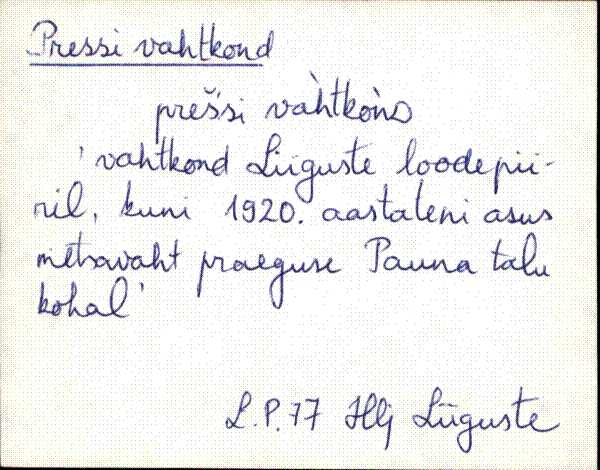 Pressi vahtkond
preš̀si vàhtkònD
'vahtkond Liiguste loodepii-
ril, kuni 1920. aastateni asus
metsavaht praeguse Pauna talu
kohal'
L.P. 77 Hlj Liiguste